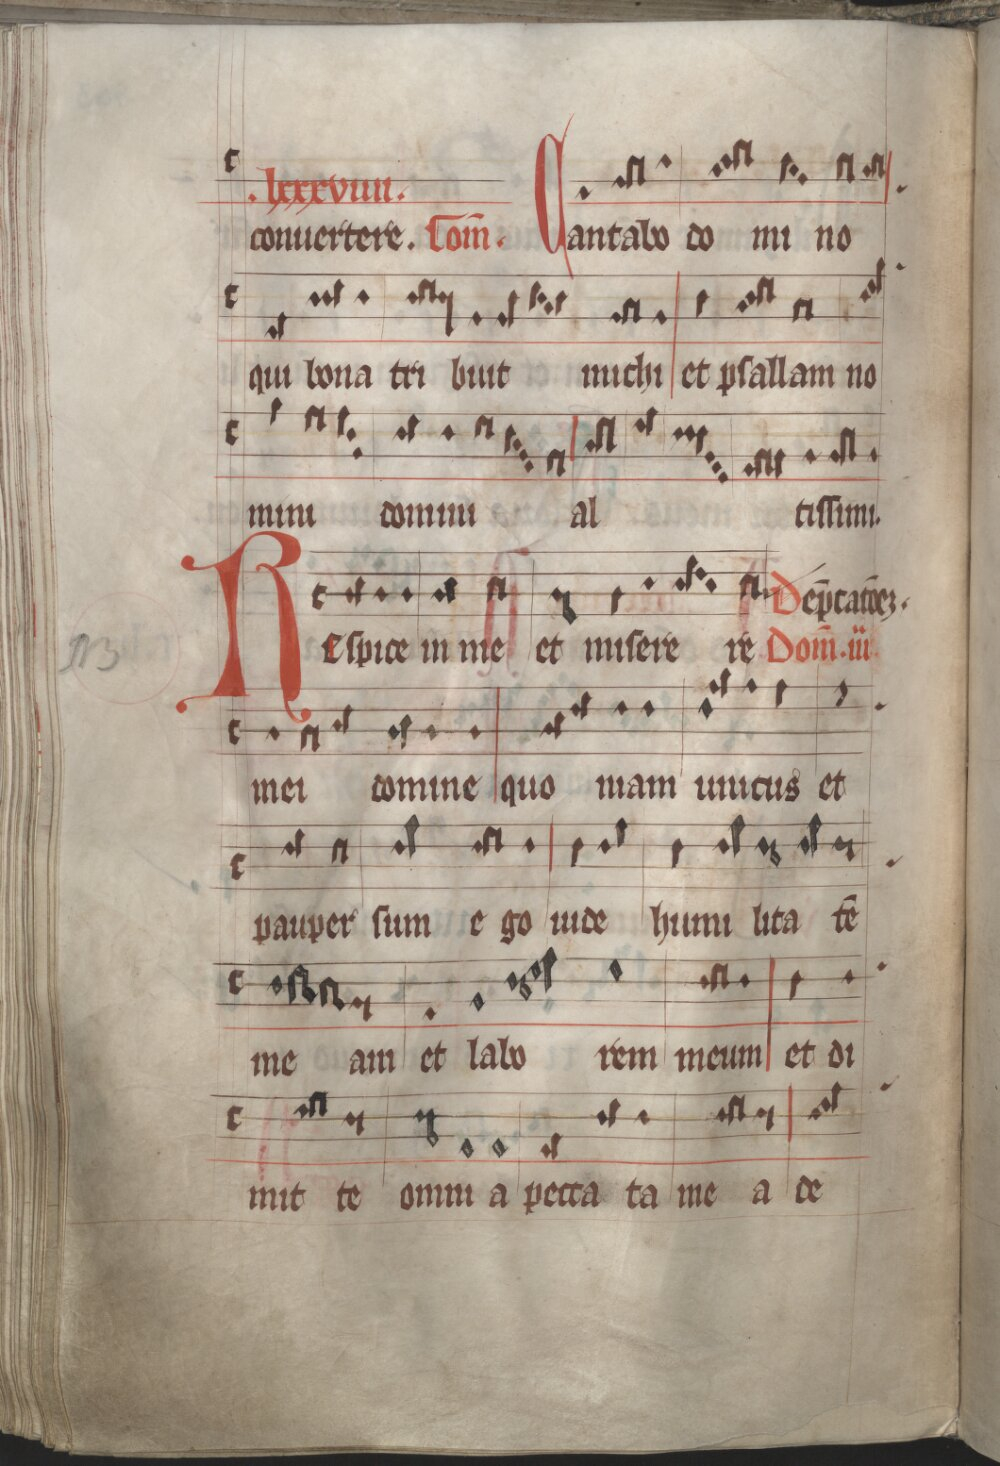 .lxxxviiii.
conuertere. Com̄. Cantabo do mi no
qui bona tri buit michi et psallam no
mini domini al tissimi.
Dep̄catōez.
REspice in me et misere re Dom̄.iii.
mei domine quo niam unicus et
pauper sum e go uide humi lita tē
me am et labo rem meum et di
mit te omni a pecca ta me a de